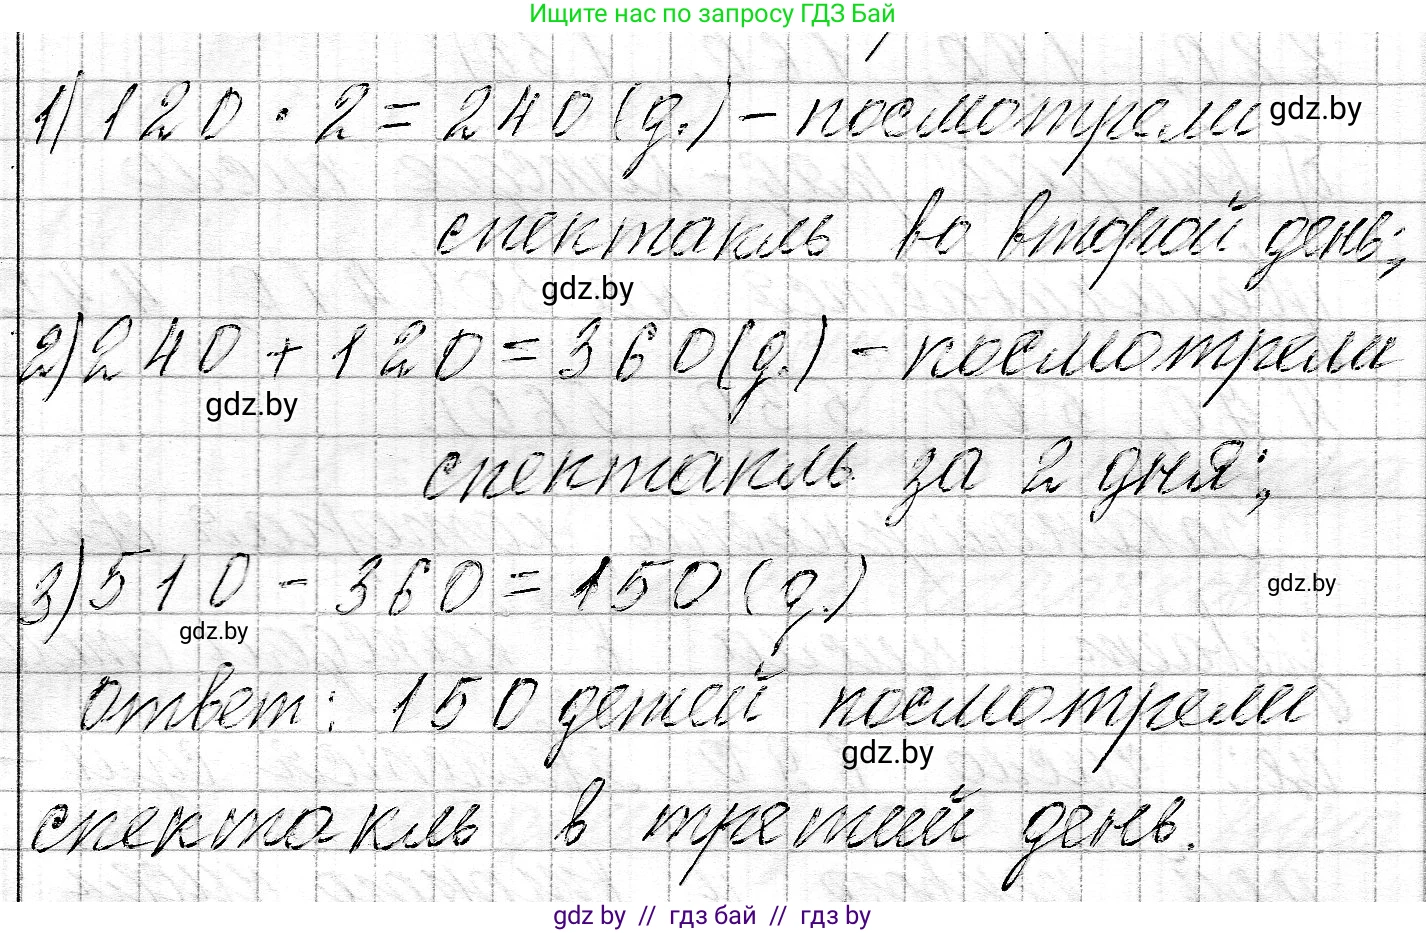 Ищите нас по запросу ГДЗ Бай
1) 120 · 2 = 240 (д.) – посмотрели gdz.by
спектакль во второй день;
gdz.by
2) 240 + 120 = 360 (д.) – посмотрели
gdz.by
спектакль за 2 дня;
3) 510 – 360 = 150 (д.)
gdz.by
gdz.by
ответ: 150 детей посмотрели
gdz.by
спектакль в третий день.
gdz by // гдз бай // гдз by